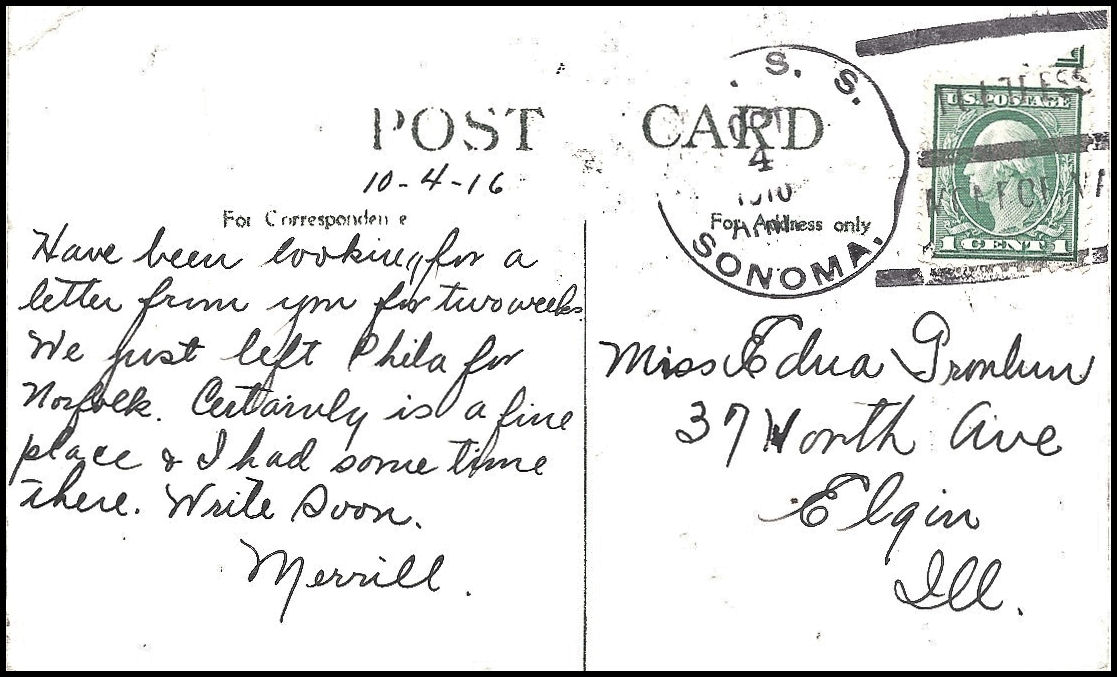 POST CARD
10-4-16
For Correspondence
For Address only
U.S.S.
OCT
4
SONOMA.
U.S. POSTAGE
1 CENT 1
Have been looking for a
letter from you for two weeks.
We just left Phila for
Norfolk. Certainly is a fine
place & I had some time
there. Write Soon.
Merrill.
Miss Edna Gronlun
37 Worth Ave
Elgin
Ill.